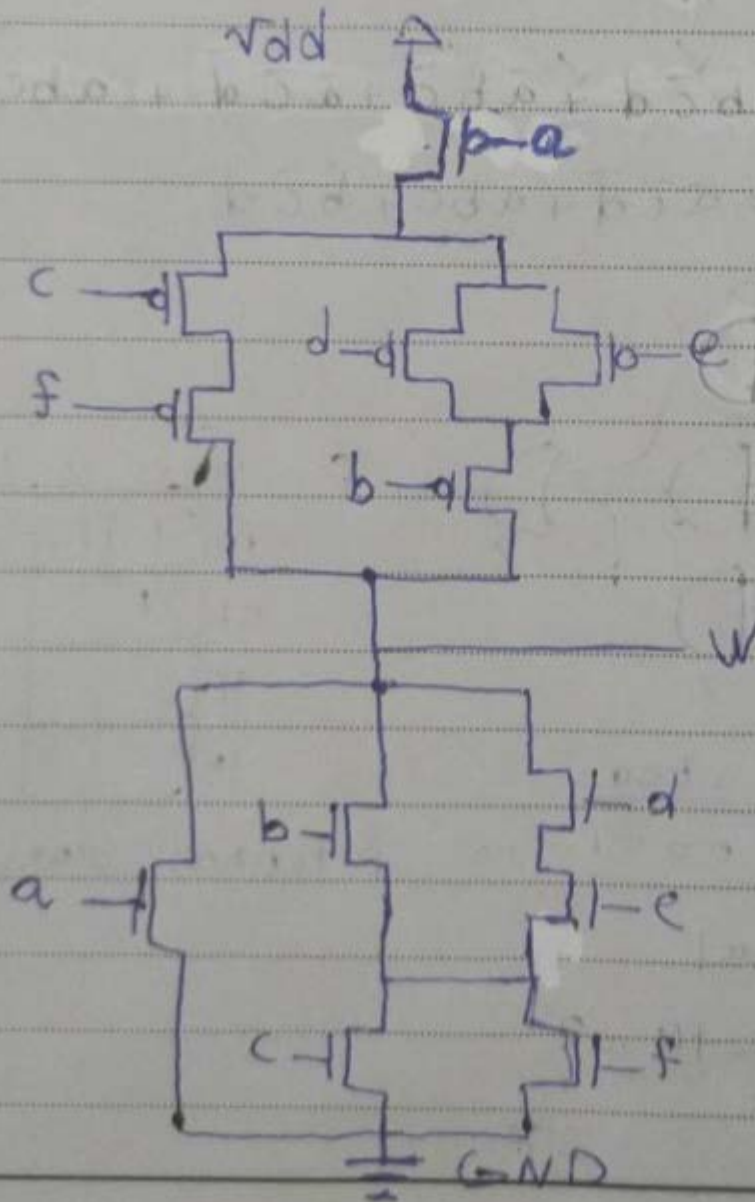 Vdd
a
c
d
e
f
b
W
b
d
a
e
c
f
GND